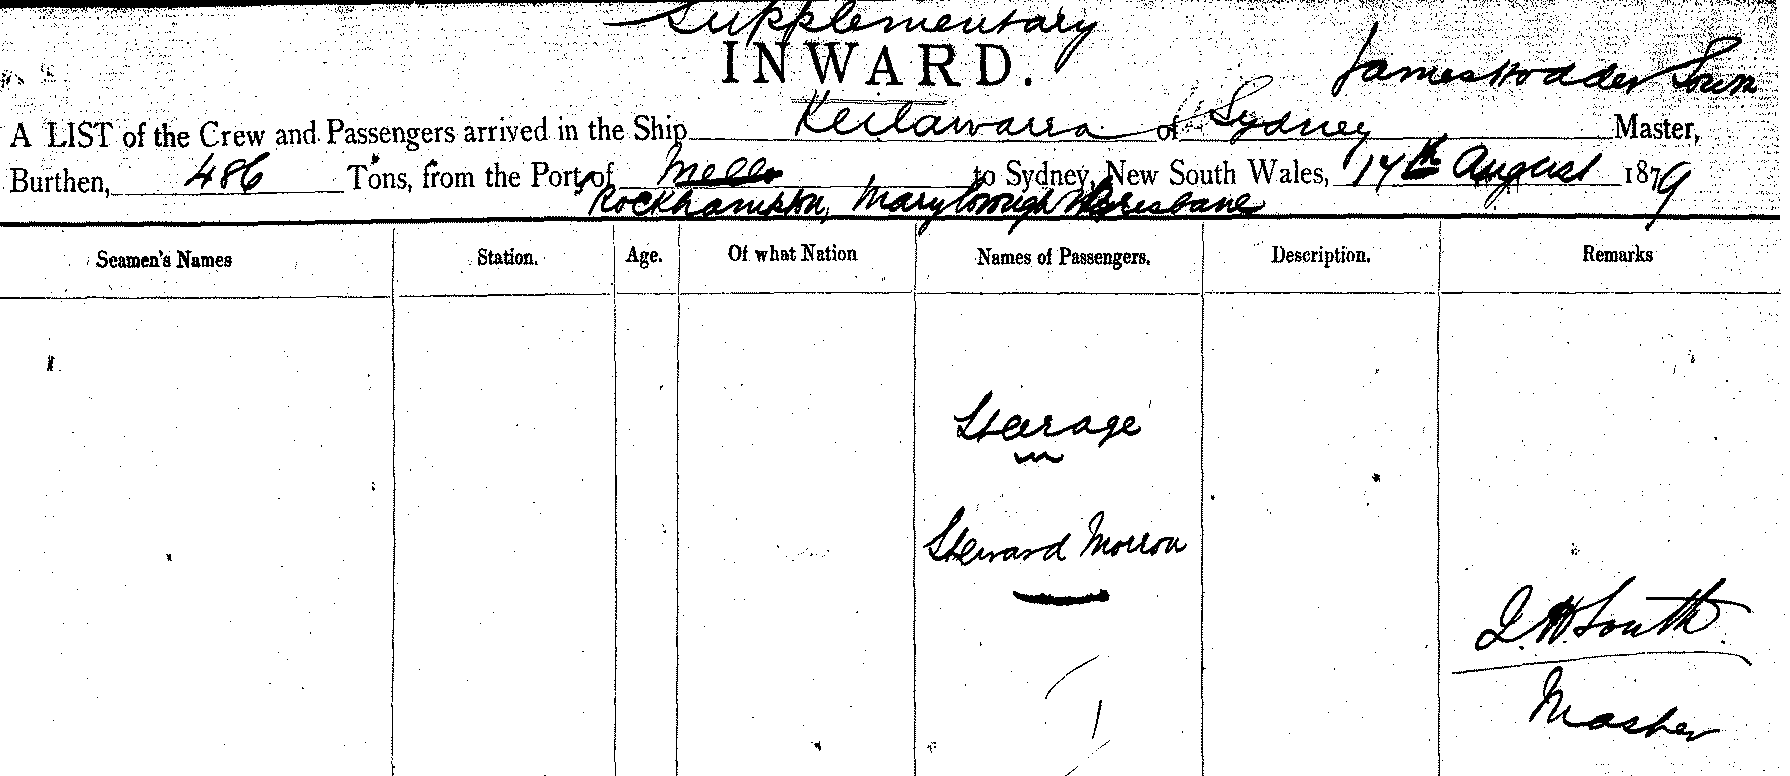 Supplementary
INWARD.
James Hodder South
A LIST of the Crew and Passengers arrived in the Ship Keilawarra of Sydney Master,
Burthen, 486 Tons, from the Port of Melb to Sydney, New South Wales, 14th August 1879
Rockhampton, Maryborough & Brisbane
Seamen's Names Station. Age. Of what Nation Names of Passengers. Description. Remarks
Steerage
Steward Morrow
J. H. South
Master